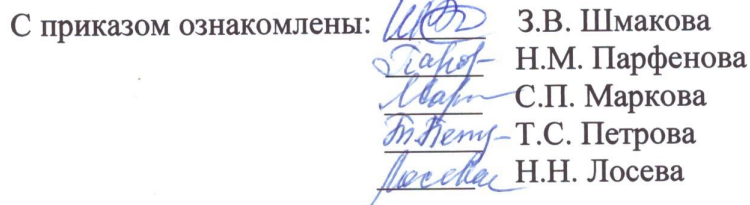 С приказом ознакомлены: З.В. Шмакова
Н.М. Парфенова
С.П. Маркова
Т.С. Петрова
Лосева Н.Н. Лосева